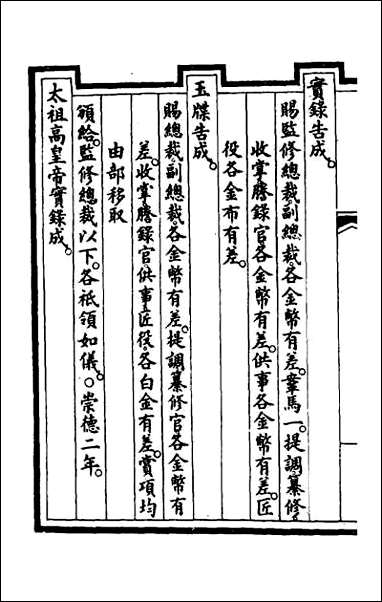 實錄告成。
賜監修總裁、副總裁、各金幣有差。鞌馬一。提調、纂修、
收掌、謄錄官、各金幣有差。供事各金幣有差。匠
役各金布有差。
玉牒告成。
賜總裁、副總裁、各金幣有差。提調、纂修官、各金幣有
差。收掌、謄錄官、供事、匠役、各白金有差。賞項均
由部移取
頒給。監修總裁以下。各祇領如儀。○崇德二年。
太祖高皇帝實錄成。